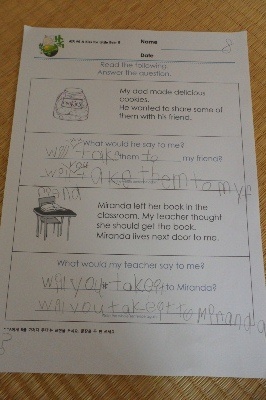 Name 8
Date
Read the following.
Answer the question.
My dad made delicious
cookies.
He wanted to share some of
them with his friend.
What would he say to me?
will take them to my friend?
you
will take them to my f
Miranda left her book in the
classroom. My teacher thought
she should get the book.
Miranda lives next door to me.
What would my teacher say to me?
will you take it to Miranda?
will you take it to Miranda